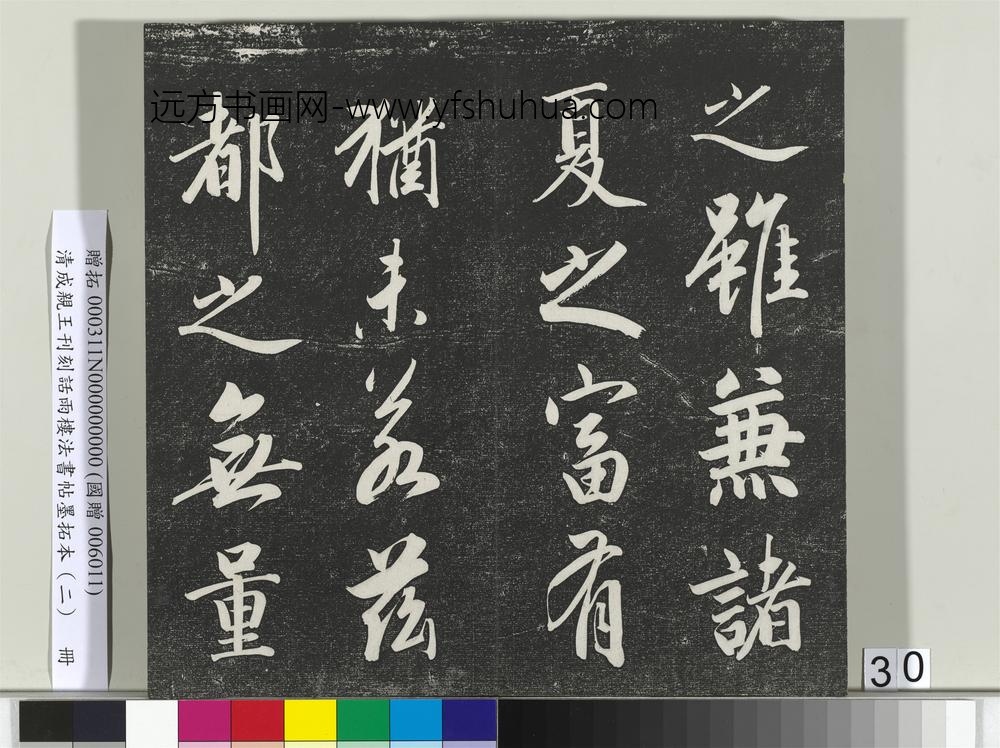 之雖兼諸
夏之富有
猶未若茲
都之無量
远方书画网-www.yfshuhua.com
贈拓 000311N000000000(國贈 006011)
清成親王刊刻話雨樓法書帖墨拓本(二) 冊
30